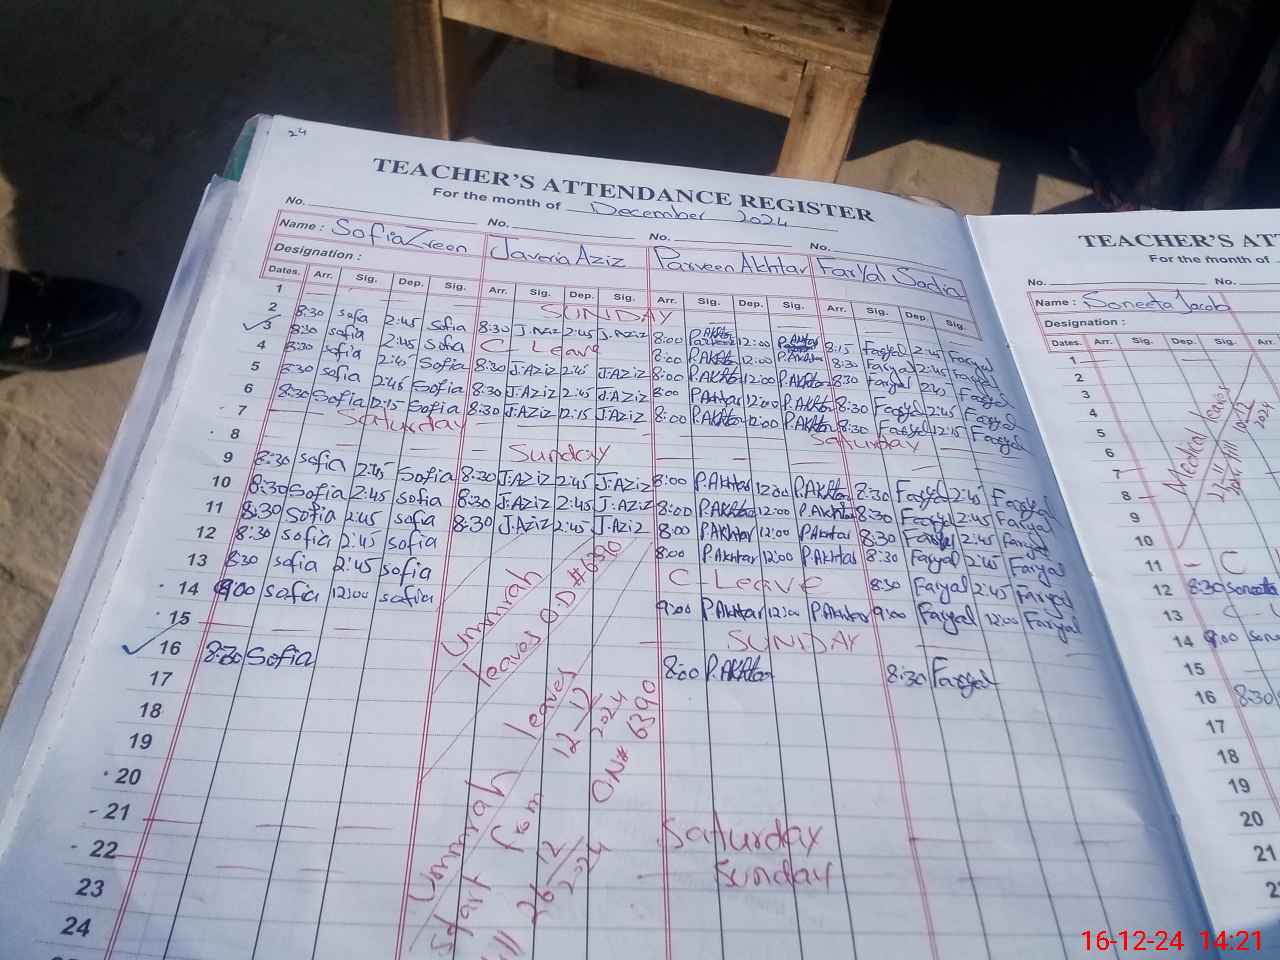 24
TEACHER'S ATTENDANCE REGISTER
For the month of December 2024
No. No. No. No.
Name : Sofia Zreen Javeria Aziz Parveen Akhtar Faryal Sadia
Designation :
Dates. Arr. Sig. Dep. Sig. Arr. Sig. Dep. Sig. Arr. Sig. Dep. Sig. Arr. Sig. Dep. Sig.
1 SUNDAY
2 8:30 sofia 2:45 Sofia 8:30 J.Aziz 2:45 J.Aziz 8:00 P.Akhtar 12:00 P.Akhtar 8:15 Faryal 2:45 Faryal
3 8:30 sofia 2:45 Sofia C- Leave 8:00 P.Akhtar 12:00 P.Akhtar 8:30 Faryal 2:45 Faryal
4 8:30 sofia 2:45 Sofia 8:30 J.Aziz 2:45 J.Aziz 8:00 P.Akhtar 12:00 P.Akhtar 8:30 Faryal 2:45 Faryal
5 8:30 sofia 2:45 Sofia 8:30 J.Aziz 2:45 J.Aziz 8:00 P.Akhtar 12:00 P.Akhtar 8:30 Faryal 2:45 Faryal
6 8:30 Sofia 12:15 Sofia 8:30 J.Aziz 12:15 J.Aziz 8:00 P.Akhtar 12:00 P.Akhtar 8:30 Faryal 12:15 Faryal
7 Saturday Saturday
8 Sunday
9 8:30 sofia 2:45 Sofia 8:30 J.Aziz 2:45 J.Aziz 8:00 P.Akhtar 12:00 P.Akhtar 8:30 Faryal 2:45 Faryal
10 8:30 Sofia 2:45 sofia 8:30 J.Aziz 2:45 J.Aziz 8:00 P.Akhtar 12:00 P.Akhtar 8:30 Faryal 2:45 Faryal
11 8:30 Sofia 2:45 sofia 8:30 J.Aziz 2:45 J.Aziz 8:00 P.Akhtar 12:00 P.Akhtar 8:30 Faryal 2:45 Faryal
12 8:30 sofia 2:45 sofia 8:00 P.Akhtar 12:00 P.Akhtar 8:30 Faryal 2:45 Faryal
13 8:30 sofia 2:45 sofia C-Leave 8:30 Faryal 2:45 Faryal
14 9:00 sofia 12:00 sofia 9:00 P.Akhtar 12:00 P.Akhtar 9:00 Faryal 12:00 Faryal
15 SUNDAY
16 8:30 Sofia 8:00 P.Akhtar 8:30 Faryal
17
18
19
20
21 Saturday
22 Sunday
23
24
Ummrah
leaves O.D#6390
Ummrah leaves
Start from 12-12/2024
till 26 12/2024
ON# 6390
TEACHER'S AT
For the month of
No. No.
Name : Soneeta Jacob
Designation :
Dates. Arr. Sig. Dep. Sig. Arr.
1
2
3
4
5
6
7
8
9
10
11 C
12 8:30 Soneeta
13 C
14 9:00
15
16 8:30
17
18
19
20
21
Medical leaves
till 10-12 2024
16-12-24 14:21